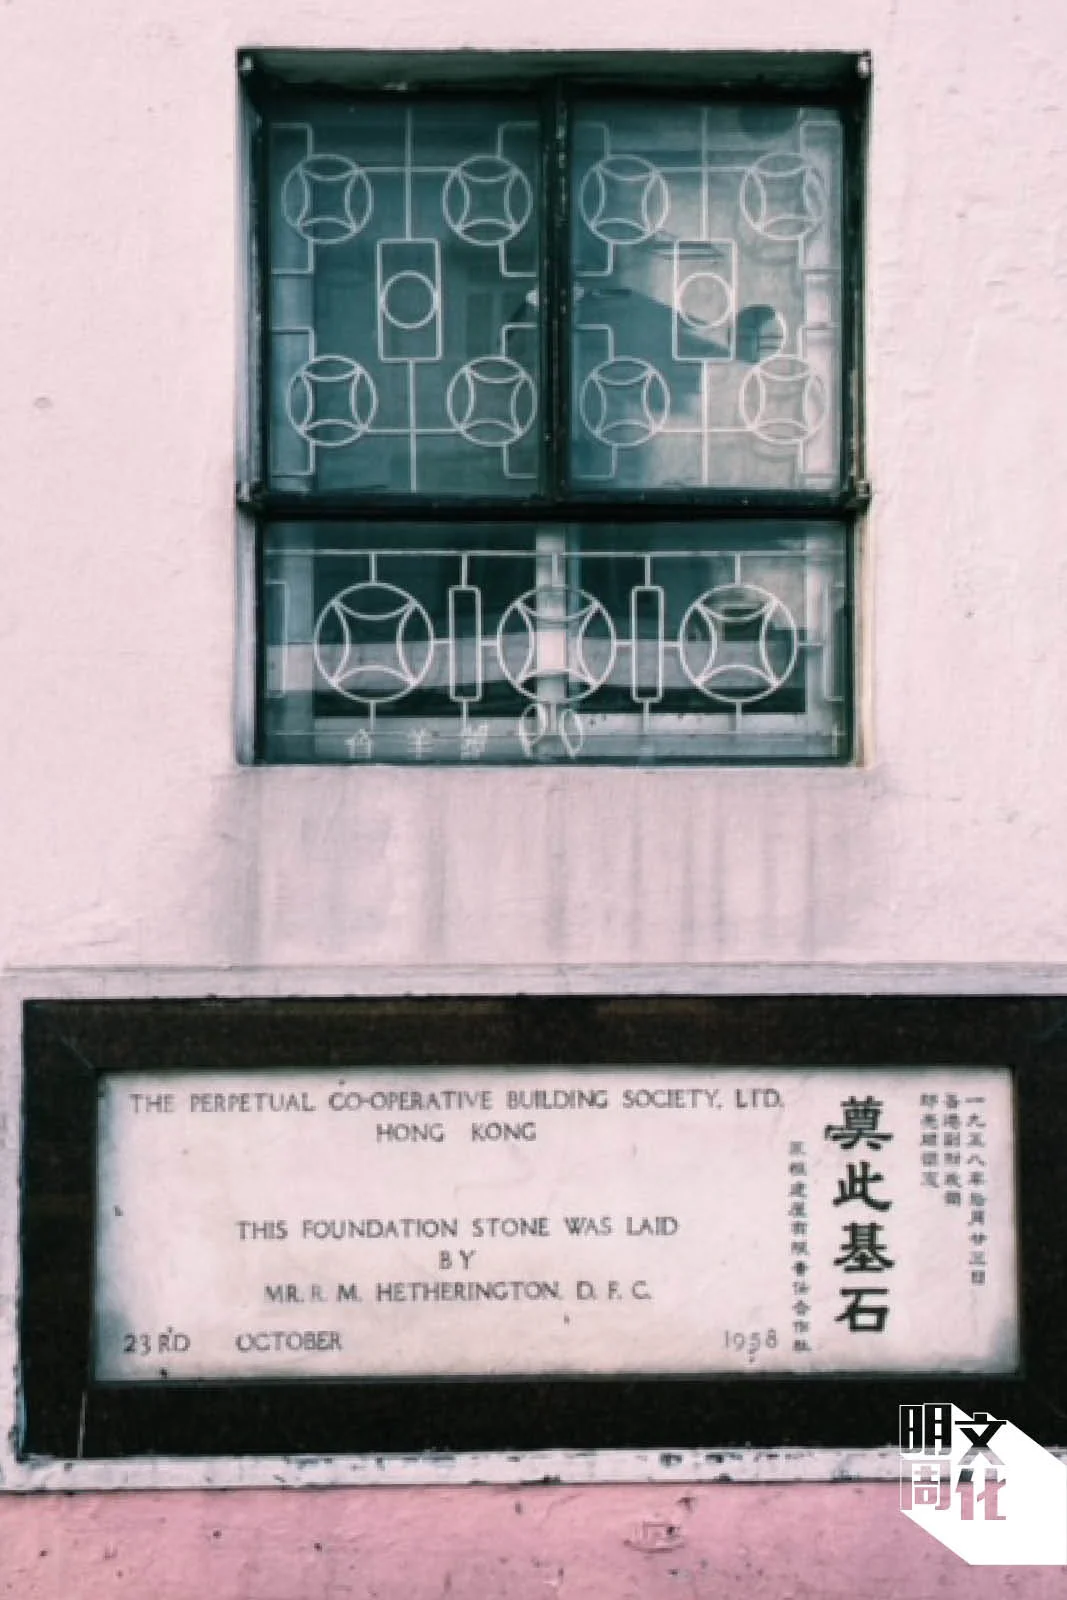 THE PERPETUAL CO-OPERATIVE BUILDING SOCIETY, LTD.
HONG KONG
THIS FOUNDATION STONE WAS LAID
BY
MR. R. M. HETHERINGTON, D. F. C.
23RD OCTOBER 1958
一九五八年拾月廿三日
香港副財政司
奠此基石
建屋有限責任合作社
明周文化